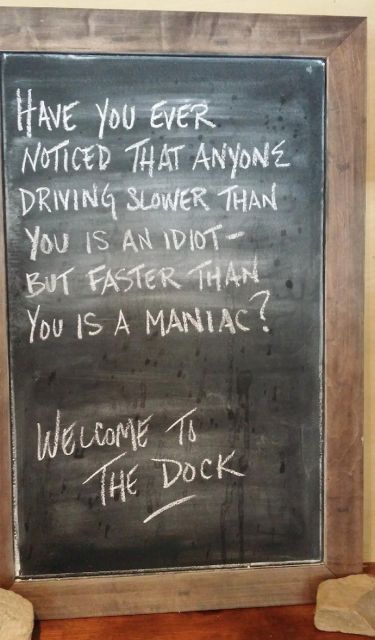 HAVE YOU EVER
NOTICED THAT ANYONE
DRIVING SLOWER THAN
YOU IS AN IDIOT-
BUT FASTER THAN
YOU IS A MANIAC?
WELCOME TO
THE DOCK